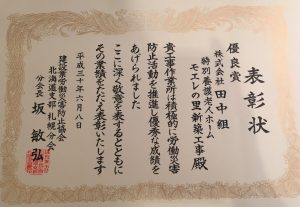 表彰状
優良賞
株式会社 田中組
特別養護老人ホーム
モエレの里新築工事 殿
貴工事作業所は積極的に労働災害
防止活動を推進し優秀な成績を
あげられました
ここに深く敬意を表するとともに
その業績をたたえ表彰いたします
平成三十年六月八日
建設業労働災害防止協会
北海道支部 札幌分会
分会長 坂 敏弘